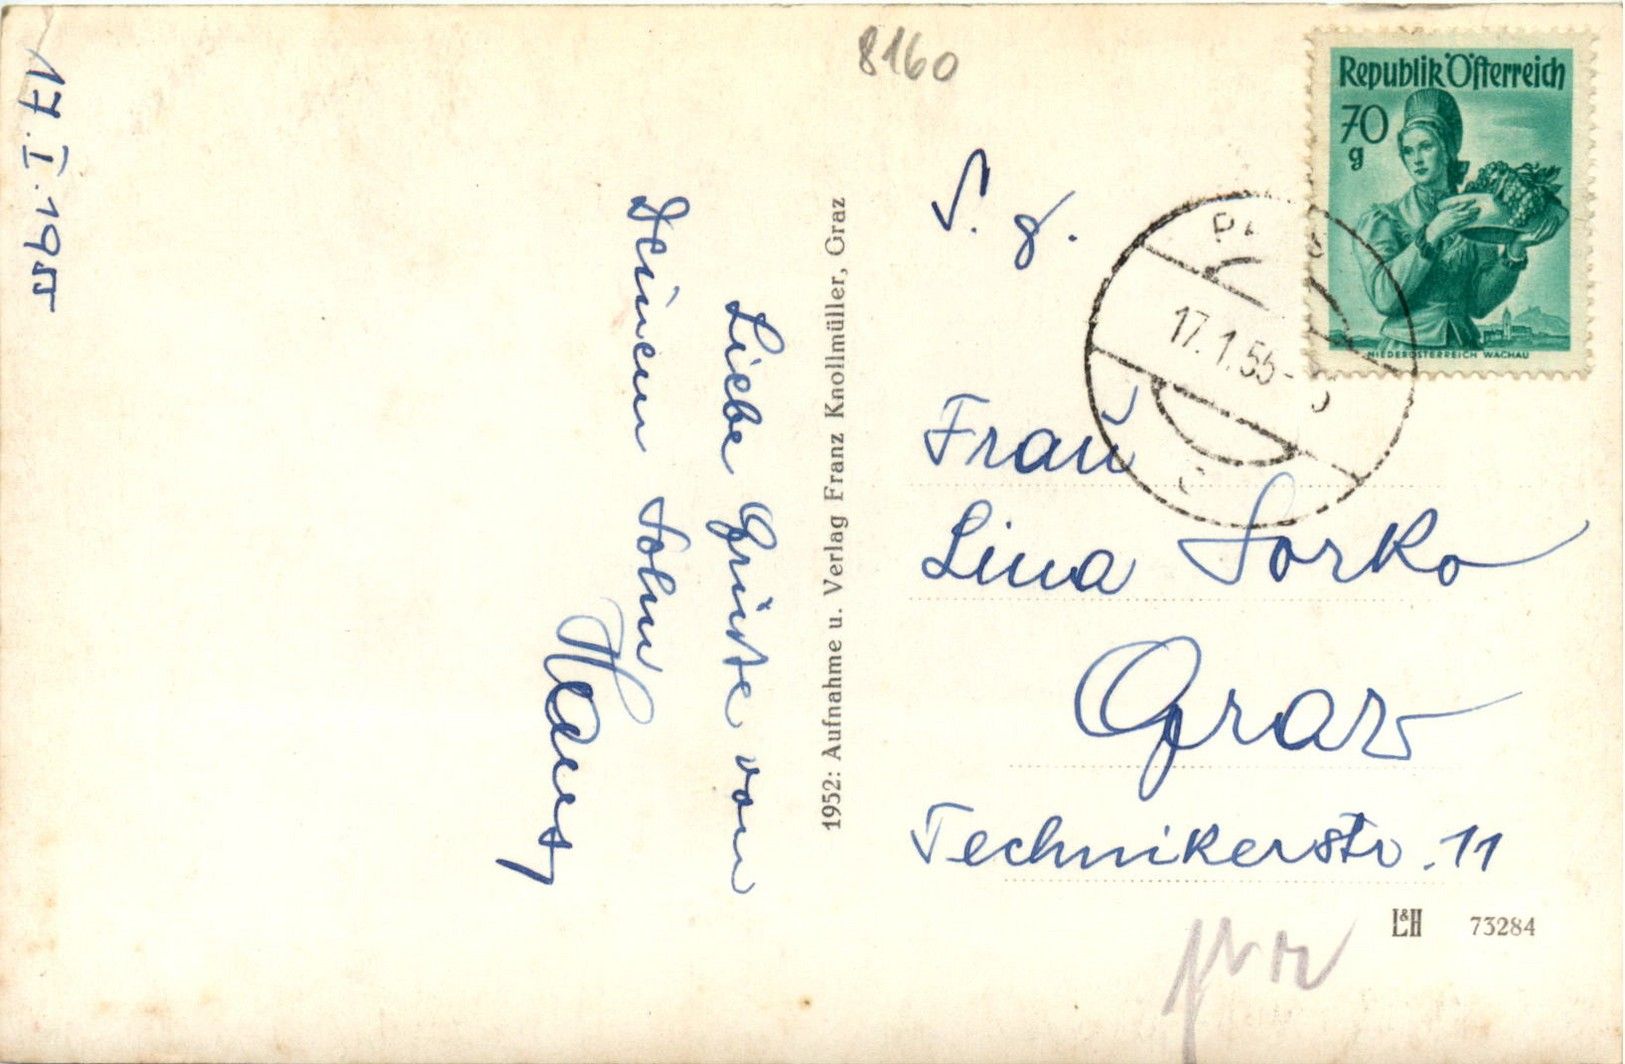 17. I. 1955
Liebe Grüsse von
Deinem Sohn
1952: Aufnahme u. Verlag Franz Knollmüller, Graz
8160
S. g.
Republik Österreich
70
g
NIEDERÖSTERREICH WACHAU
17.1.55
Frau
Lina Sorko
Graz
Technikerstr. 11
L&H 73284